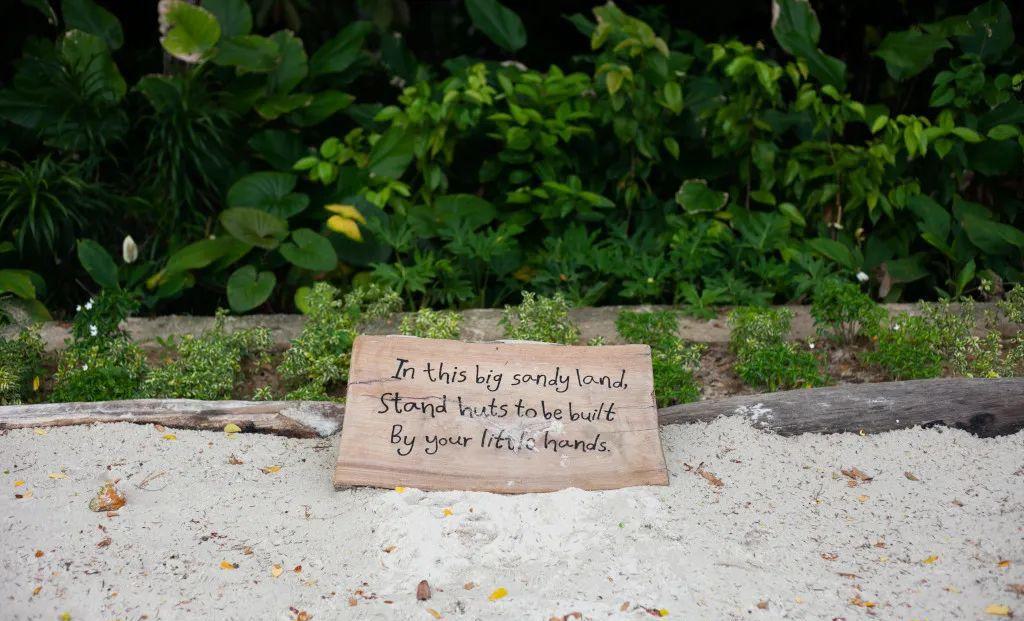 In this big sandy land,
Stand huts to be built
By your little hands.